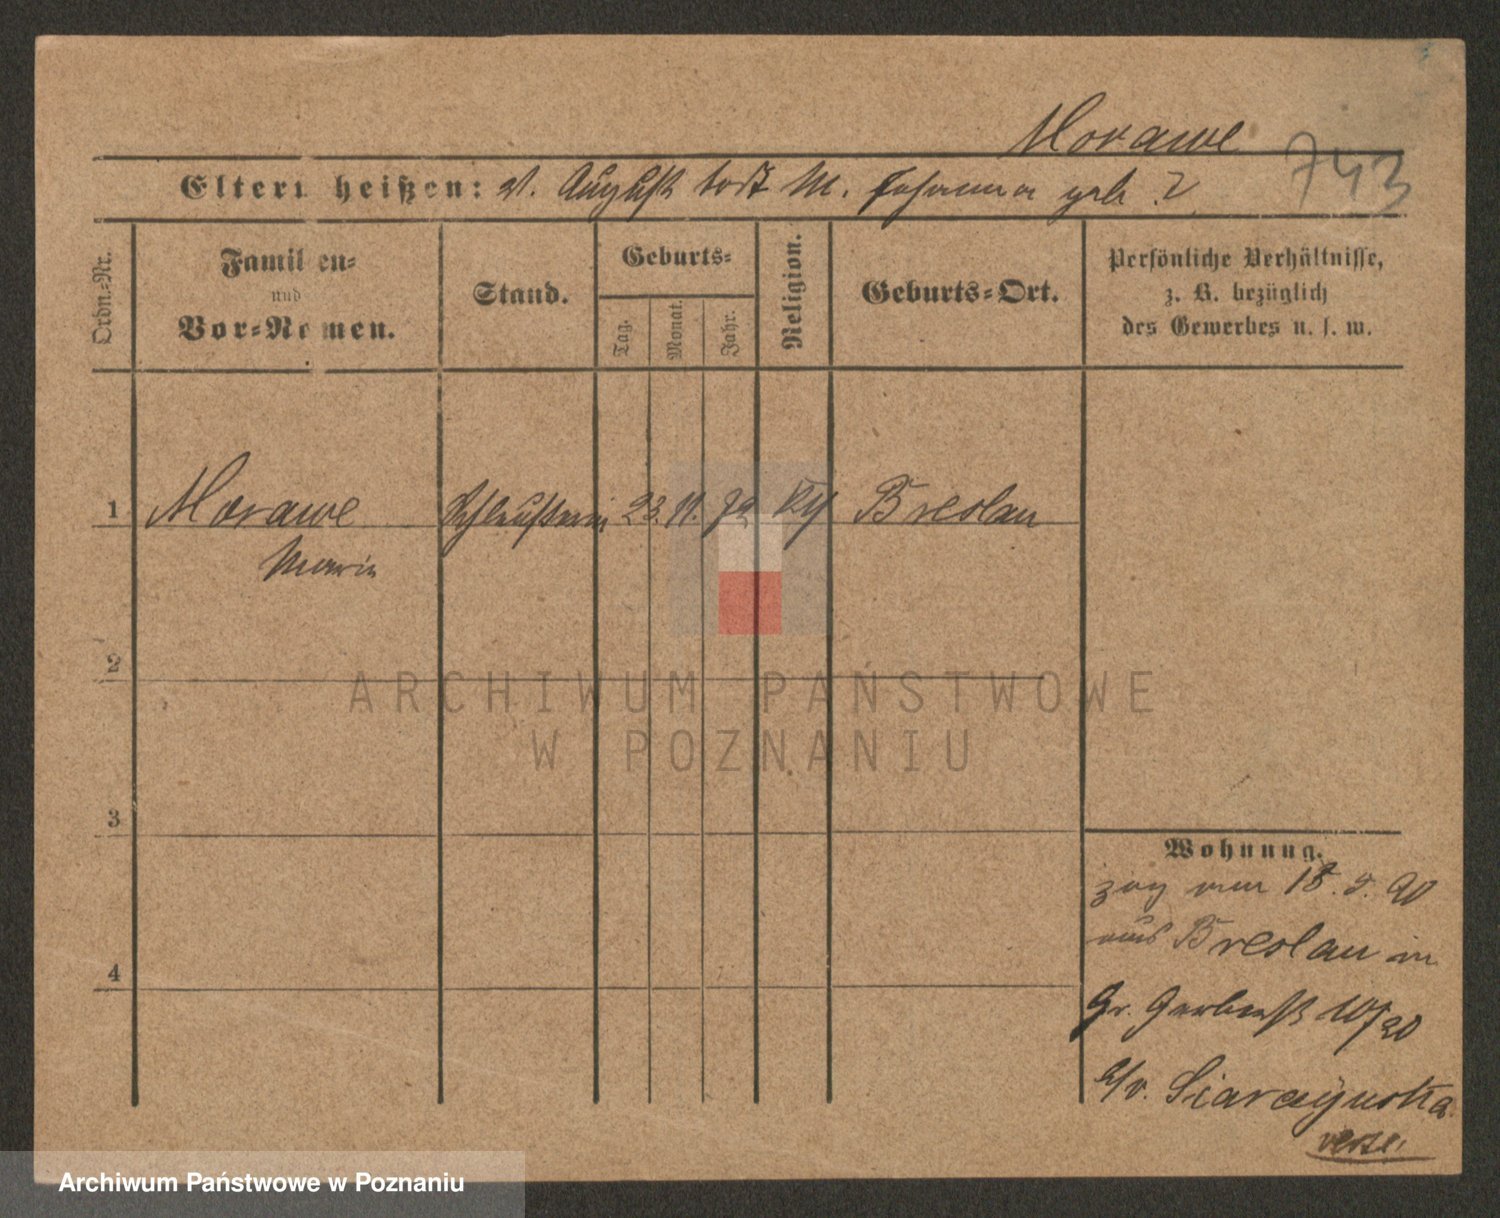 Morawe
743
Eltern heißen: V. August todt M. Johanna geb. ?
Ordn.-Nr.
Familien-
und
Vor-Namen.
Stand.
Geburts-
Tag.
Monat.
Jahr.
Religion.
Geburts-Ort.
Persönliche Verhältnisse,
z. B. bezüglich
des Gewerbes u. s. w.
1 Morawe 23. 11. 72 Breslau
Marie
2
3
4
Wohnung.
zog am 18. 5. 90
aus Breslau in
Gr. Gerberst 10/20
verte!
ARCHIWUM PAŃSTWOWE
W POZNANIU
Archiwum Państwowe w Poznaniu